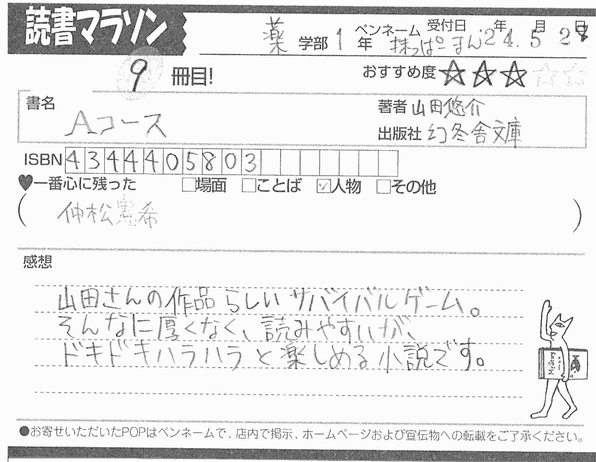 読書マラソン
薬 学部 1 年 ペンネーム 抹っぱまん 受付日 '24年 5月 2 日
9 冊目!
おすすめ度 ★★★☆☆
書名 Aコース
著者 山田悠介
出版社 幻冬舎文庫
ISBN 4344405803
♥一番心に残った □場面 □ことば ☑人物 □その他
( 仲松憲希 )
感想
山田さんの作品らしいサバイバルゲーム。
そんなに厚くなく、読みやすいが、
ドキドキハラハラと楽しめる小説です。
●お寄せいただいたPOPはペンネームで、店内で掲示、ホームページおよび宣伝物への転載をご了承ください。